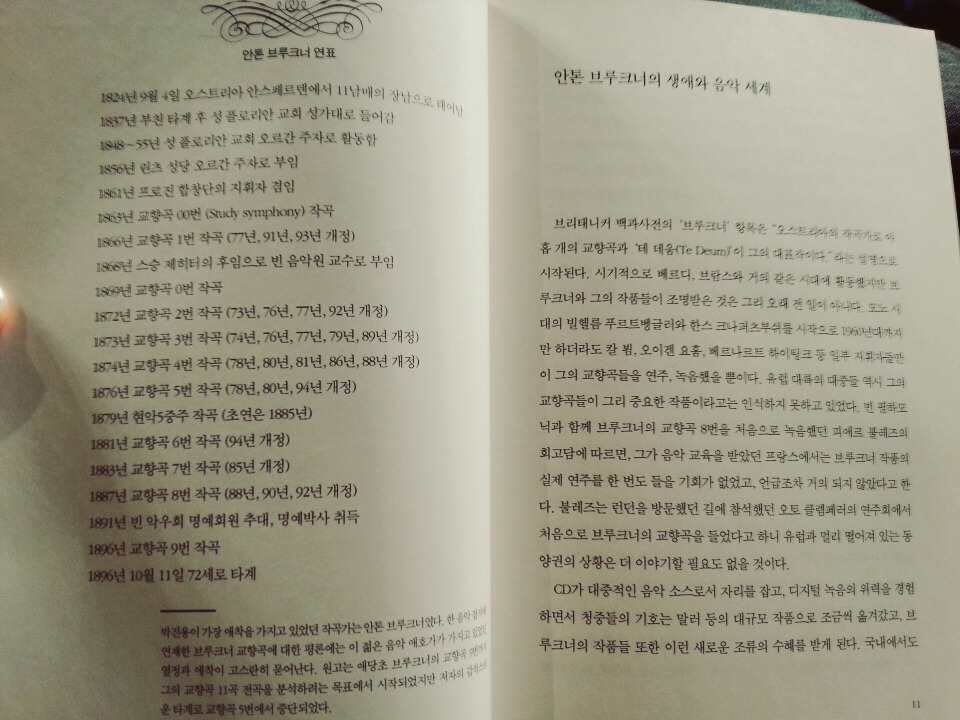 안톤 브루크너 연표
1824년 9월 4일 오스트리아 안스펠덴에서 11남매의 장남으로 태어남
1837년 부친 타계 후 성 플로리안 교회 성가대로 들어감
1848~55년 성 플로리안 교회 오르간 주자로 활동함
1856년 린츠 성당 오르간 주자로 부임
1861년 프로진 합창단의 지휘자 겸임
1863년 교향곡 00번 (Study symphony) 작곡
1866년 교향곡 1번 작곡 (77년, 91년, 93년 개정)
1868년 스승 제히터의 후임으로 빈 음악원 교수로 부임
1869년 교향곡 0번 작곡
1872년 교향곡 2번 작곡 (73년, 76년, 77년, 92년 개정)
1873년 교향곡 3번 작곡 (74년, 76년, 77년, 79년, 89년 개정)
1874년 교향곡 4번 작곡 (78년, 80년, 81년, 86년, 88년 개정)
1876년 교향곡 5번 작곡 (78년, 80년, 94년 개정)
1879년 현악5중주 작곡 (초연은 1885년)
1881년 교향곡 6번 작곡 (94년 개정)
1883년 교향곡 7번 작곡 (85년 개정)
1887년 교향곡 8번 작곡 (88년, 90년, 92년 개정)
1891년 빈 악우회 명예회원 추대, 명예박사 취득
1896년 교향곡 9번 작곡
1896년 10월 11일 72세로 타계
박진용이 가장 애착을 가지고 있었던 작곡가는 안톤 브루크너였다. 한 음악 잡지에
연재한 브루크너 교향곡에 대한 평론에는 이 젊은 음악 애호가가 가지고 있었던
열정과 애착이 고스란히 묻어난다. 원고는 애당초 브루크너의 교향곡 9번까지
그의 교향곡 11곡 전곡을 분석하려는 목표에서 시작되었지만 저자의 갑작스러
운 타계로 교향곡 5번에서 중단되었다.
안톤 브루크너의 생애와 음악 세계
브리태니커 백과사전의 '브루크너' 항목은 "오스트리아의 작곡가로 아
홉 개의 교향곡과 '테 데움(Te Deum)'이 그의 대표작이다."라는 설명으로
시작된다. 시기적으로 베르디, 브람스와 거의 같은 시대에 활동했지만 브
루크너와 그의 작품들이 조명받은 것은 그리 오래 전 일이 아니다. 모노 시
대의 빌헬름 푸르트벵글러와 한스 크나퍼츠부쉬를 시작으로 1960년대까지
만 하더라도 칼 뵘, 오이겐 요훔, 베르나르트 하이팅크 등 일부 지휘자들만
이 그의 교향곡들을 연주, 녹음했을 뿐이다. 유럽 대륙의 대중들 역시 그의
교향곡들이 그리 중요한 작품이라고는 인식하지 못하고 있었다. 빈 필하모
닉과 함께 브루크너의 교향곡 8번을 처음으로 녹음했던 피에르 불레즈의
회고담에 따르면, 그가 음악 교육을 받았던 프랑스에서는 브루크너 작품의
실제 연주를 한 번도 들을 기회가 없었고, 언급조차 거의 되지 않았다고 한
다. 불레즈는 런던을 방문했던 길에 참석했던 오토 클렘페러의 연주회에서
처음으로 브루크너의 교향곡을 들었다고 하니 유럽과 멀리 떨어져 있는 동
양권의 상황은 더 이야기할 필요도 없을 것이다.
CD가 대중적인 음악 소스로서 자리를 잡고, 디지털 녹음의 위력을 경험
하면서 청중들의 기호는 말러 등의 대규모 작품으로 조금씩 옮겨갔고, 브
루크너의 작품들 또한 이런 새로운 조류의 수혜를 받게 된다. 국내에서도
11